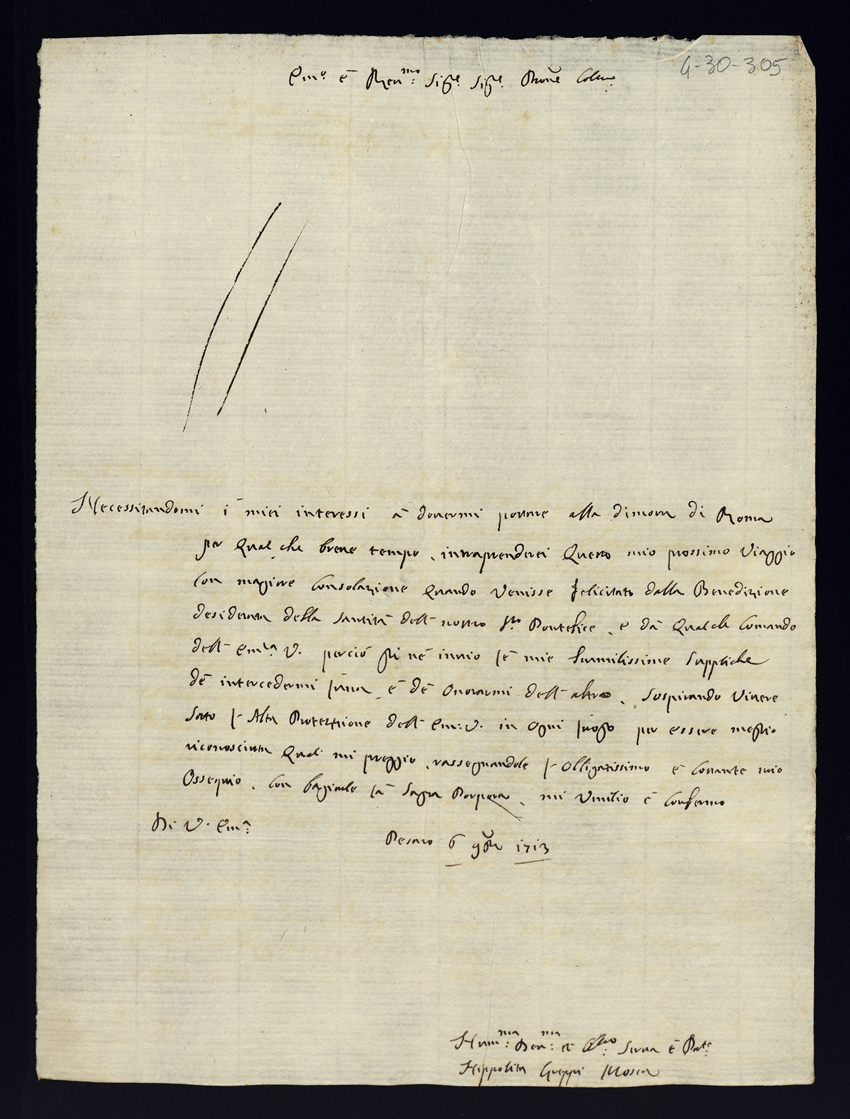 4-30-305
Em.o è Rev.mo Sig.e Sig.e Prone Colmo
Necessitandomi i miei interessi à dovermi portare alla dimora di Roma
per qualche breve tempo, intraprenderei questo mio prossimo viaggio
con magiore consolazione quando venisse felicitato dalla Benedizione
desiderata della Santità dell nostro S.to Pontefice, e dà qualche comando
dell Em.za V. perciò gli ne invio le mie humilissime suppliche
dè intercedermi l'una, è dè onorarmi dell altro, sospirando vivere
sotto l'Alta Protettione dell Em.V. in ogni per essere meglio
riconosciuta qual mi preggio, rassegnandole l'obligatissimo è costante mio
ossequio, con bagiarle la Sagra Porpora, mi umilio è confermo
Di V. Em.a
Pesaro 6 9bre 1713
Hum.ma Dev.ma et Serva è
Hippolita Greppi Mosca